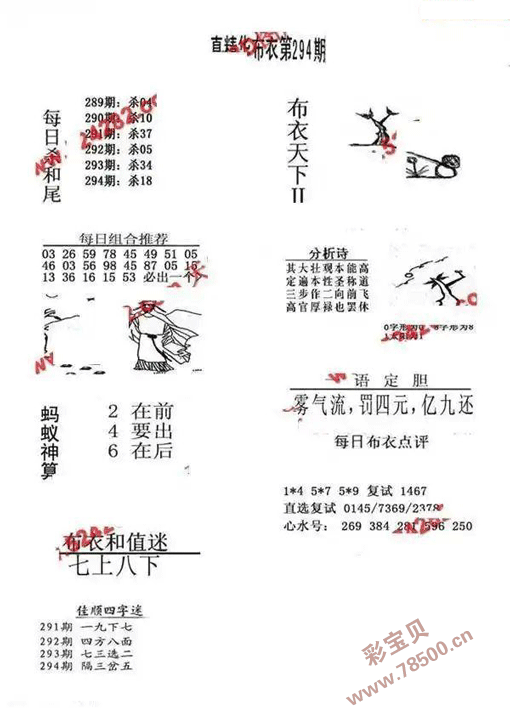 布衣第294期
每日杀和尾
289期：杀04
290期：杀10
291期：杀37
292期：杀05
293期：杀34
294期：杀18
布衣天下II
每日组合推荐
03 26 59 78 45 49 51 05
46 03 56 98 45 87 05 15
13 36 16 15 53 必出一个
分析诗
其大壮观本能高
定遍本性圣称道
三步作二向前飞
高官厚禄也罢休
蚂蚁神算
2 在前
4 要出
6 在后
一语定胆
雾气流，罚四元，亿九还
每日布衣点评
1*4 5*7 5*9 复试 1467
直选复试 0145/7369/2378
心水号： 269 384 281 596 250
布衣和值迷
七上八下
佳顺四字迷
291期 一九下七
292期 四方八面
293期 七三选二
294期 隔三岔五
彩宝贝
www.78500.cn